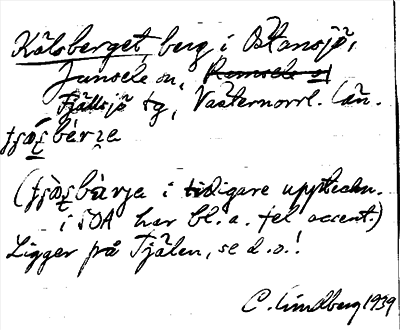 Kälsberget, berg i Östansjö,
Junsele sn, Ramsele sn
Fjällsjö tg, Västernorrl. län.
bàrje
(bàrja i tidigare uppteckn.
i SOA har bl. a. fel accent.)
Ligger på Tjälen, se d. o.!
C. Lindberg 1939